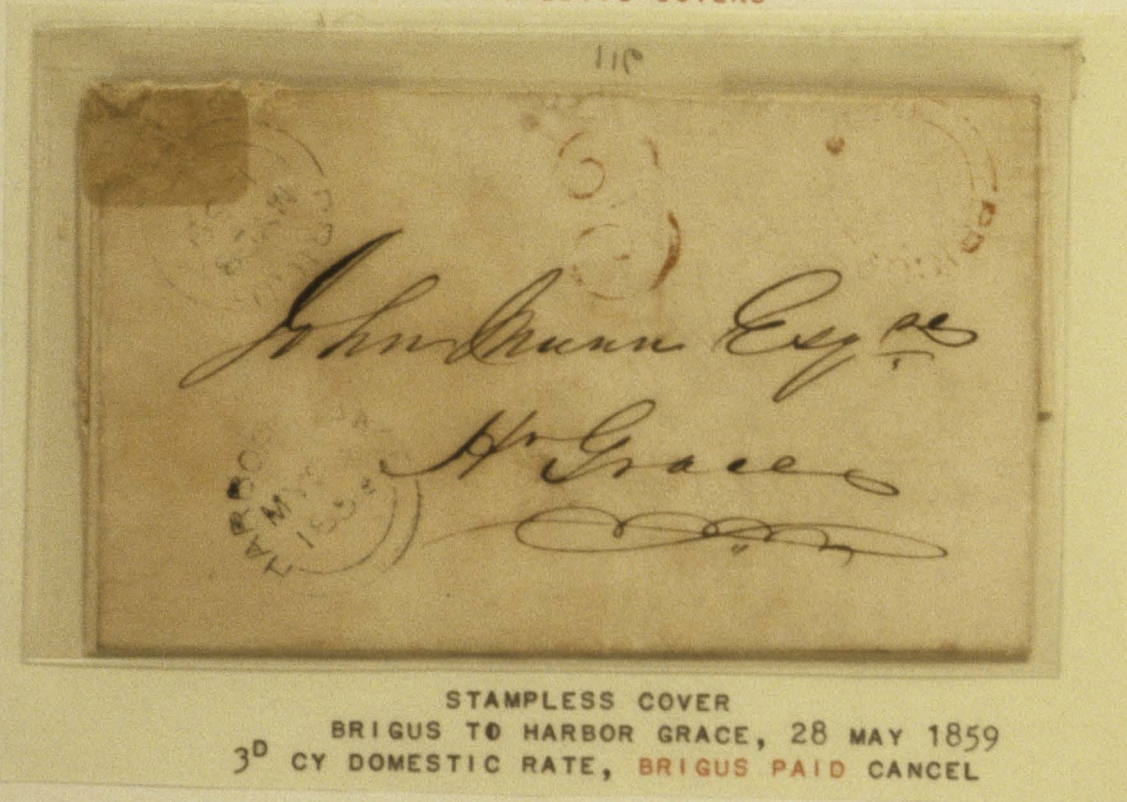 John Munn Esqre
Hr Grace
HARBOR
MY
STAMPLESS COVER
BRIGUS TO HARBOR GRACE, 28 MAY 1859
3D CY DOMESTIC RATE, BRIGUS PAID CANCEL